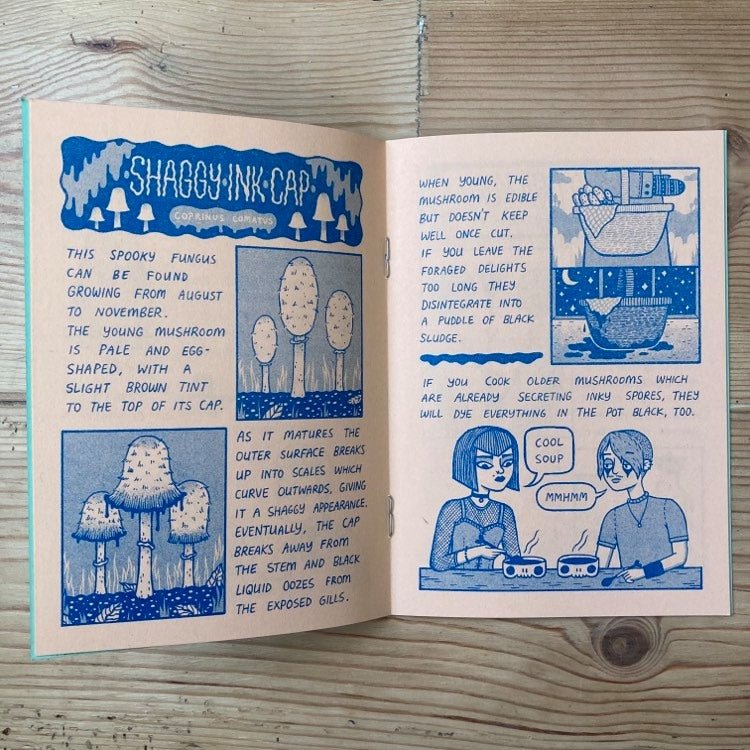 SHAGGY·INK·CAP
COPRINUS COMATUS
THIS SPOOKY FUNGUS
CAN BE FOUND
GROWING FROM AUGUST
TO NOVEMBER.
THE YOUNG MUSHROOM
IS PALE AND EGG-
SHAPED, WITH A
SLIGHT BROWN TINT
TO THE TOP OF ITS CAP.
AS IT MATURES THE
OUTER SURFACE BREAKS
UP INTO SCALES WHICH
CURVE OUTWARDS, GIVING
IT A SHAGGY APPEARANCE.
EVENTUALLY, THE CAP
BREAKS AWAY FROM
THE STEM AND BLACK
LIQUID OOZES FROM
THE EXPOSED GILLS.
WHEN YOUNG, THE
MUSHROOM IS EDIBLE
BUT DOESN'T KEEP
WELL ONCE CUT.
IF YOU LEAVE THE
FORAGED DELIGHTS
TOO LONG THEY
DISINTEGRATE INTO
A PUDDLE OF BLACK
SLUDGE.
IF YOU COOK OLDER MUSHROOMS WHICH
ARE ALREADY SECRETING INKY SPORES, THEY
WILL DYE EVERYTHING IN THE POT BLACK, TOO.
COOL
SOUP
MMHMM